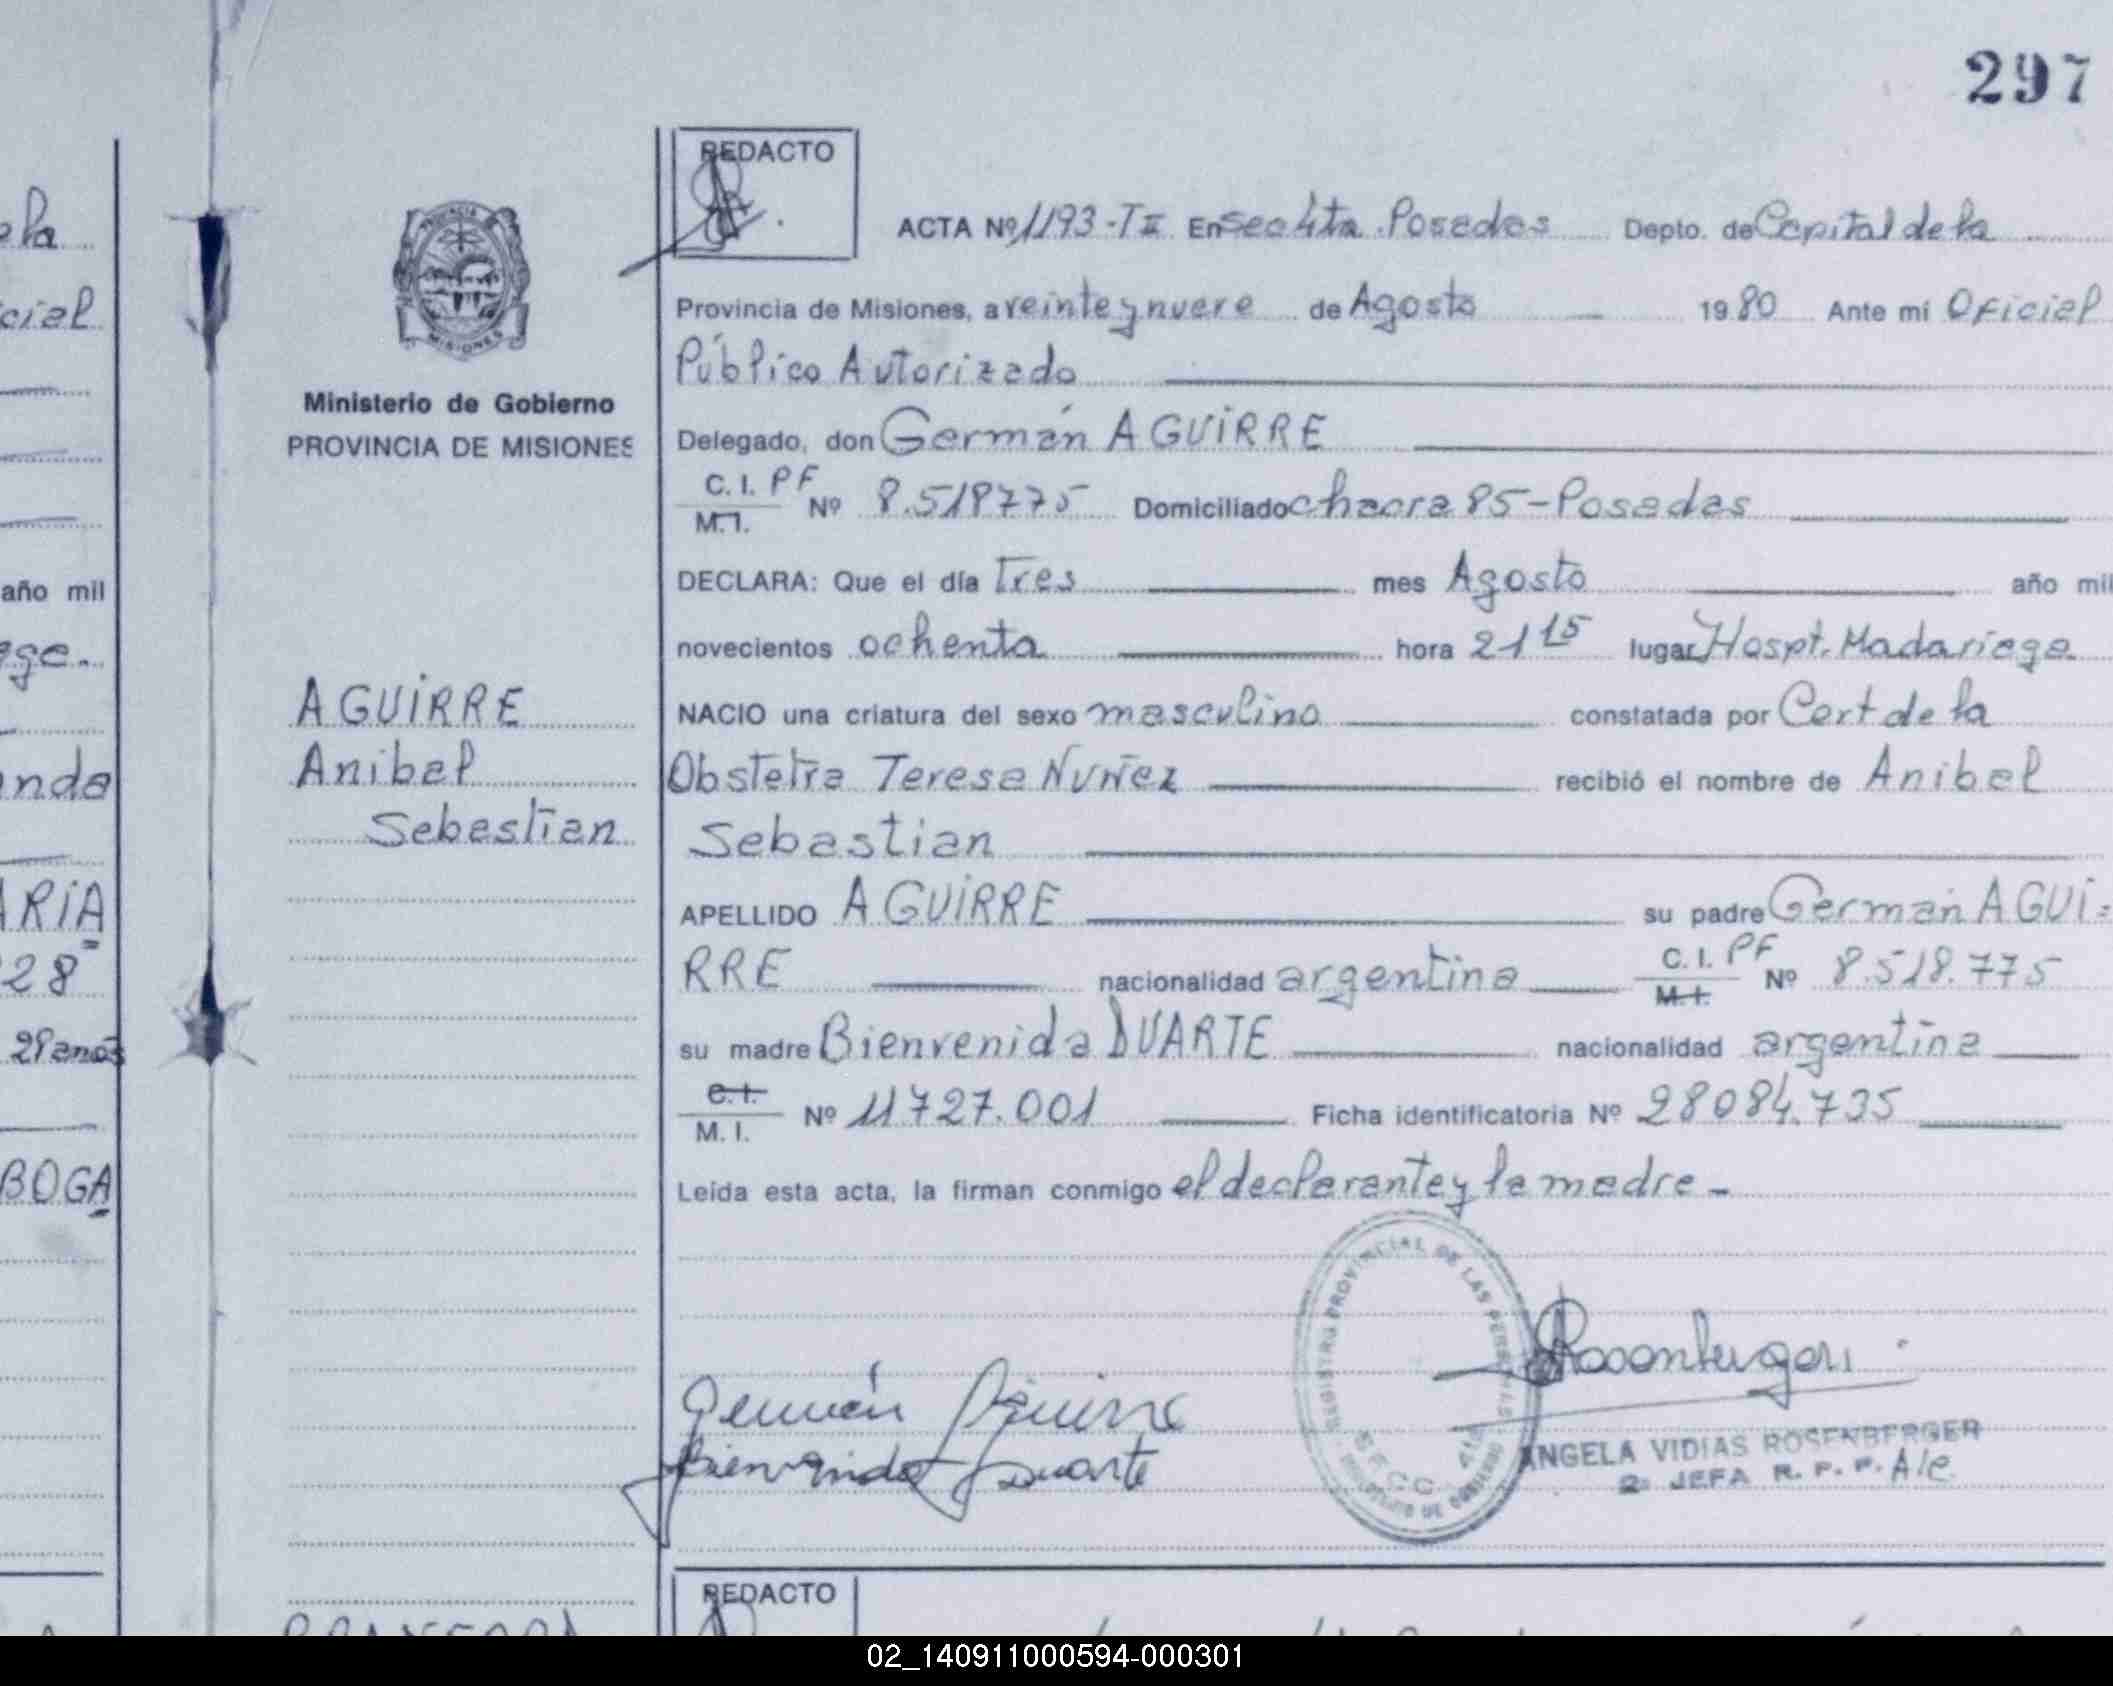 297
REDACTO
ACTA Nº 1193-TII En Sec 4ta Posadas Depto. de Capital de la
Provincia de Misiones, a veinte y nueve de Agosto 1980 Ante mi Oficial
Público Autorizado
Delegado, don Germán AGUIRRE
C. I. PF
M. I. Nº 8.518775 Domiciliado chacra 85-Posadas
DECLARA: Que el día Tres mes Agosto año mil
novecientos ochenta hora 21 15 lugar Hospt. Madariaga
NACIO una criatura del sexo masculino constatada por Cert de la
Obstetra Teresa Nuñez recibió el nombre de Anibal
Sebastian
APELLIDO AGUIRRE su padre Germán AGUI=
RRE nacionalidad argentina C. I. PF
M. I. Nº 8.518.775
su madre Bienvenida DUARTE nacionalidad argentina
C. I.
M. I. Nº 11727.001 Ficha identificatoria Nº 28084.735
Leída esta acta, la firman conmigo el declarante y la madre -
Germán Aguirre
Bienvenida Duarte
REGISTRO PROVINCIAL DE LAS PERSONAS
SECC. 4ta
MINISTERIO DE GOBIERNO
Rosenberger
ANGELA VIDIAS ROSENBERGER
2º JEFA R. P. P. A/C
REDACTO
PROVINCIA
MISIONES
Ministerio de Gobierno
PROVINCIA DE MISIONES
AGUIRRE
Anibal
Sebastian
e la
cial
año mil
age.
anda
ARIA
28
29 anos
BOGA
02_140911000594-000301